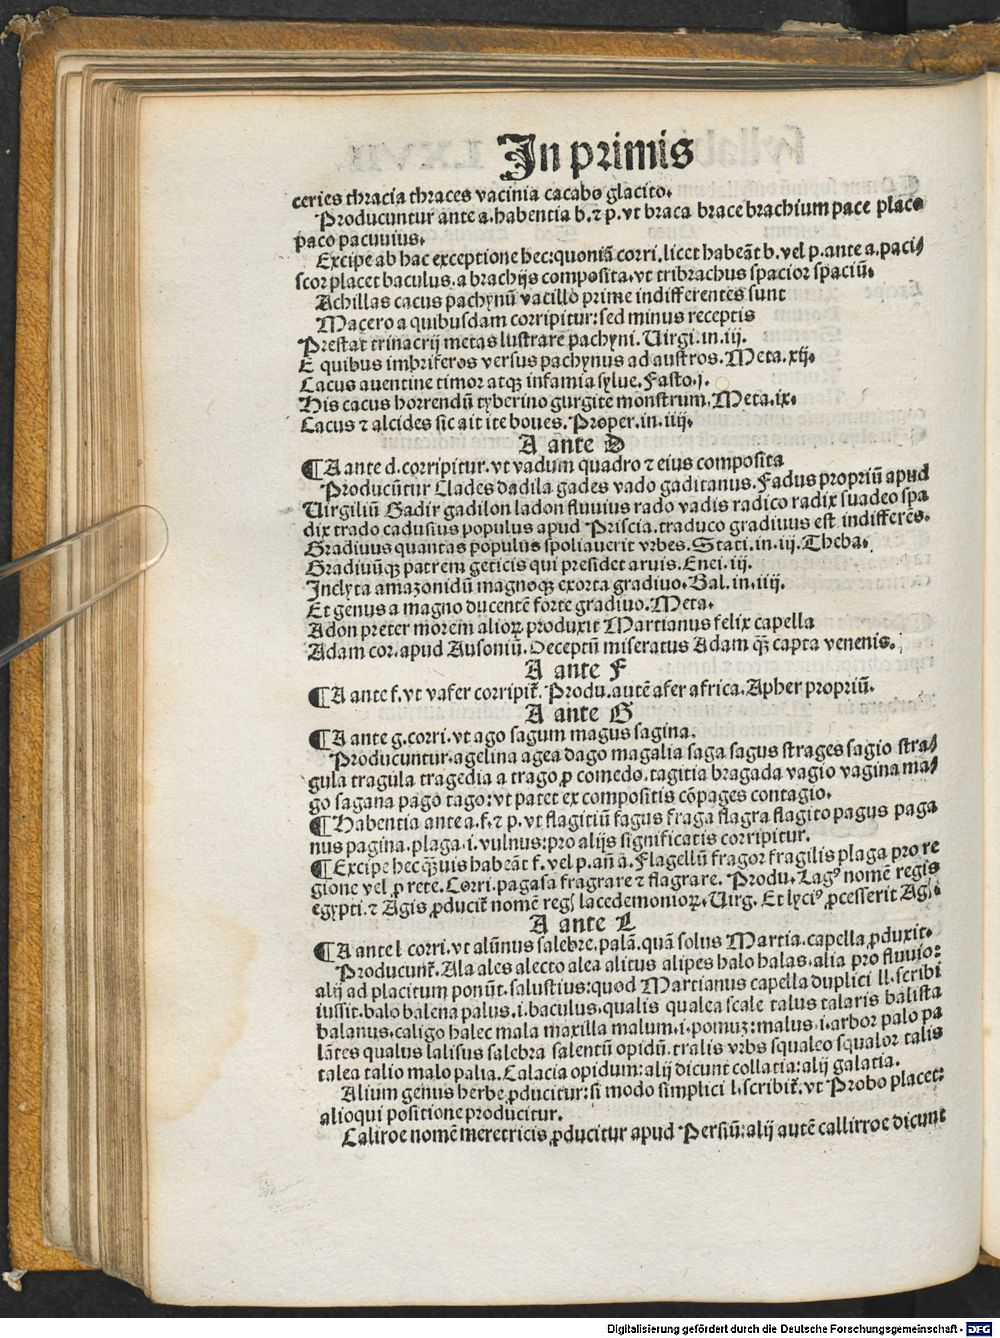 In primis
ceries thracia thraces vacinia cacabo glacito.
Producuntur ante a.habentia b.⁊ p.vt braca brace brachium pace placo
paco pacuuius.
Excipe ab hac exceptione hec:quoniã corri.licet habeãt b.vel p.ante a.paci⸗
scor placet baculus.a brachijs composita.vt tribrachus spacior spaciũ.
Achillas cacus pachynũ vacillo prime indifferentes sunt
Macero a quibusdam corripitur:sed minus receptis
Prestat trinacrij metas lustrare pachyni.Uirgi.in.iij.
E quibus imbriferos versus pachynus ad austros.Meta.xij.
Cacus auentine timor atqꝫ infamia sylue.Fasto.j.
His cacus horrendũ tyberino gurgite monstrum.Meta.ix.
Cacus ⁊ alcides sic ait ite boues.Proper.in.iiij.
A ante D
¶A ante d.corripitur.vt vadum quadro ⁊ eius composita
Producũtur Clades dadila gades vado gaditanus.Fadus propriũ apud
Uirgiliũ Gadir gadilon ladon fluuius rado vadis radico radix suadeo spa
dix trado cadusius populus apud Priscia.traduco gradiuus est indifferẽs.
Gradiuus quantas populus spoliauerit vrbes.Stati.in.iij.Theba.
Gradiuũqꝫ patrem geticis qui presidet aruis.Enei.iij.
Inclyta amazonidũ magnoqꝫ exorta gradiuo.Val.in.iiij.
Et genus a magno ducentẽ forte gradiuo.Meta.
Adon preter morem alioꝝ produxit Martianus felix capella
Adam cor.apud Ausoniũ.Deceptũ miseratus Adam qꝫ̃ capta venenis.
A ante F
¶A ante f.vt vafer corripit᷑.Produ.autẽ afer africa.Apher propriũ.
A ante G
¶A ante g.corri.vt ago sagum magus sagina.
Producuntur.agelina agea dago magalia saga sagus strages sagio stra⸗
gula tragula tragedia a trago ꝓ comedo.tagitia bragada vagio vagina ma⸗
go sagana pago tago:vt patet ex compositis cõpages contagio.
¶Habentia ante a.f.⁊ p.vt flagitiũ fagus fraga flagra flagito pagus paga
nus pagina.plaga.i.vulnus:pro alijs significatis corripitur.
¶Excipe hec qꝫ̃uis habeãt f.vel p.añ ã.Flagellũ fragor fragilis plaga pro re
gione vel ꝓ rete.Corri.pagasa fragrare ⁊ flagrare.Produ.Lagꝰ nomẽ regis
egypti.⁊ Agis ꝓducit᷑ nomẽ regꝭ lacedemonioꝝ.Uirg.Et lyciꝰ ꝓcesserit Agis.
A ante L
¶A ante l corri.vt alũnus salebre.palã.quã solus Martia.capella ꝓduxit.
Producunt᷑.Ala ales alecto alea alitus alipes halo halas.alia pro fluuio:
alij ad placitum ponũt.salustius:quod Martianus capella duplici ll.scribi
iussit.balo balena palus.i.baculus.qualis qualea scale talus talaris balista
balanus.caligo halec mala maxilla malum.i.pomuꝫ:malus.i.arbor palo pa
lãtes qualus lalisus salebra salentũ opidũ.tralis vrbs squaleo squalor talis
talea talio malo palia.Calacia opidum:alij dicunt collatia:alij galatia.
Alium genus herbe ꝓducitur:si modo simplici l.scribit᷑.vt Probo placet:
alioqui positione producitur.
Caliroe nomẽ meretricis ꝓducitur apud Persiũ:alij autẽ callirroe dicunt
Digitalisierung gefördert durch die Deutsche Forschungsgemeinschaft - DFG